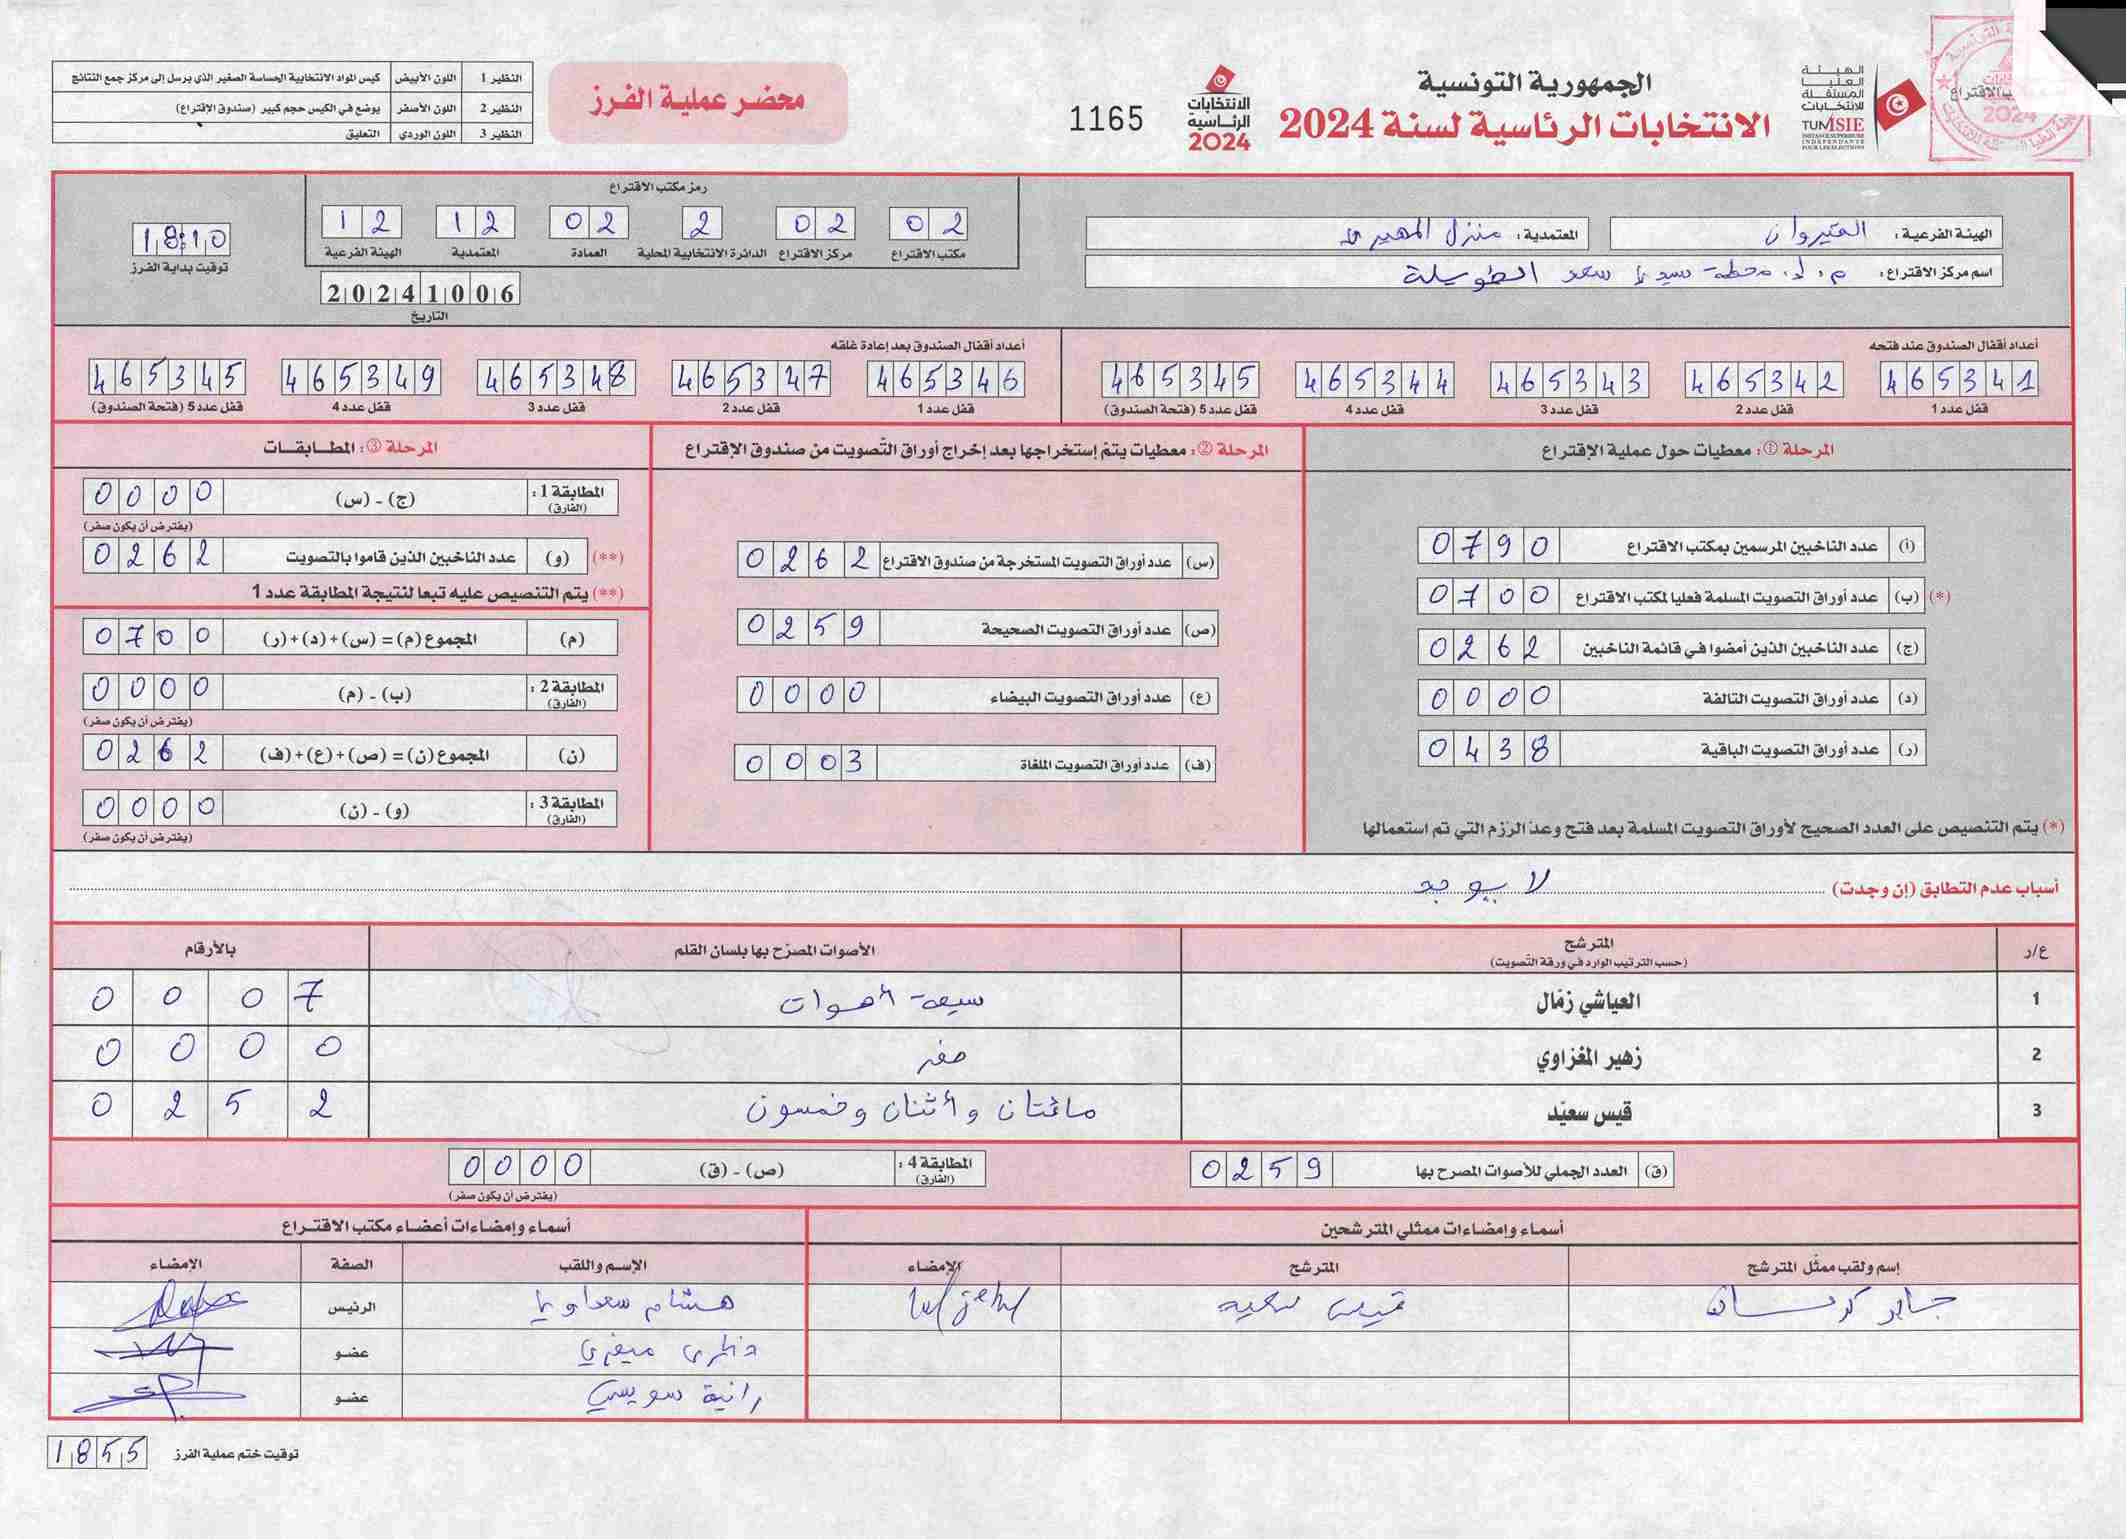 الجمهورية التونسية
الانتخابات الرئاسية لسنة 2024
الهيئة العليا المستقلة للانتخابات
TUNISIE
INSTANCE SUPERIEURE INDEPENDANTE POUR LES ELECTIONS
الانتخابات الرئاسية 2024
1165
محضر عملية الفرز
النظير 1 اللون الأبيض كيس المواد الانتخابية الحساسة الصغير الذي يرسل إلى مركز جمع النتائج
النظير 2 اللون الأصفر يوضع في الكيس حجم كبير (صندوق الإقتراع)
النظير 3 اللون الوردي التعليق
الهيئة الفرعية : القيروان
المعتمدية : منزل المهيري
اسم مركز الاقتراع : م. إ. محطة سيدي سعد الطويلة
رمز مكتب الاقتراع
02 مكتب الاقتراع
02 مركز الاقتراع
2 الدائرة الانتخابية المحلية
02 العمادة
12 المعتمدية
12 الهيئة الفرعية
20241006
التاريخ
18:10
توقيت بداية الفرز
أعداد أقفال الصندوق عند فتحه
465341 465342 465343 465344 465345
قفل عدد 1 قفل عدد 2 قفل عدد 3 قفل عدد 4 قفل عدد 5 (فتحة الصندوق)
أعداد أقفال الصندوق بعد إعادة غلقه
465346 465347 465348 465349 465345
قفل عدد 1 قفل عدد 2 قفل عدد 3 قفل عدد 4 قفل عدد 5 (فتحة الصندوق)
المرحلة ① : معطيات حول عملية الإقتراع
(أ) عدد الناخبين المرسمين بمكتب الاقتراع 0790
(*) (ب) عدد أوراق التصويت المسلمة فعليا لمكتب الاقتراع 0700
(ج) عدد الناخبين الذين أمضوا في قائمة الناخبين 0262
(د) عدد أوراق التصويت التالفة 0000
(ر) عدد أوراق التصويت الباقية 0438
(*) يتم التنصيص على العدد الصحيح لأوراق التصويت المسلمة بعد فتح وعدّ الرّزم التي تم استعمالها
المرحلة ② : معطيات يتمّ إستخراجها بعد إخراج أوراق التّصويت من صندوق الإقتراع
(س) عدد أوراق التصويت المستخرجة من صندوق الاقتراع 0262
(ص) عدد أوراق التصويت الصحيحة 0259
(ع) عدد أوراق التصويت البيضاء 0000
(ف) عدد أوراق التصويت الملغاة 0003
المرحلة ③ : المطابقات
المطابقة 1 : (الفارق) (ج) - (س) 0000
(يفترض أن يكون صفر)
(**) (و) عدد الناخبين الذين قاموا بالتصويت 0262
(**) يتم التنصيص عليه تبعا لنتيجة المطابقة عدد 1
(م) المجموع (م) = (س) + (د) + (ر) 0700
المطابقة 2 : (الفارق) (ب) - (م) 0000
(يفترض أن يكون صفر)
(ن) المجموع (ن) = (ص) + (ع) + (ف) 0262
المطابقة 3 : (الفارق) (و) - (ن) 0000
(يفترض أن يكون صفر)
أسباب عدم التطابق (إن وجدت) لا يوجد
ع/ر المترشح الأصوات المصرّح بها بلسان القلم بالأرقام
(حسب الترتيب الوارد في ورقة التّصويت)
1 العياشي زمّال سبعة أصوات 0007
2 زهير المغزاوي صفر 0000
3 قيس سعيّد مائتان وأثنان وخمسون 0252
(ق) العدد الجملي للأصوات المصرح بها 0259
المطابقة 4 : (الفارق) (ص) - (ق) 0000
(يفترض أن يكون صفر)
أسماء وإمضاءات ممثلي المترشحين
إسم ولقب ممثّل المترشح المترشح الإمضاء
جابر قيس سعيد
أسماء وإمضاءات أعضاء مكتب الاقتراع
الإسم واللقب الصفة الإمضاء
هشام سعداوي الرئيس
عضو
رانية سويسي عضو
توقيت ختم عملية الفرز 1855